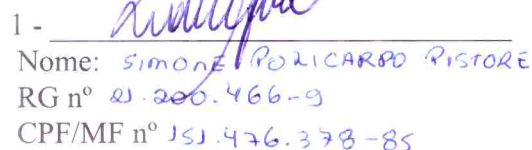 1 -
Nome: SIMONE POLICARPO PISTORE
RG nº 21.200.466-9
CPF/MF nº 151.476.378-85